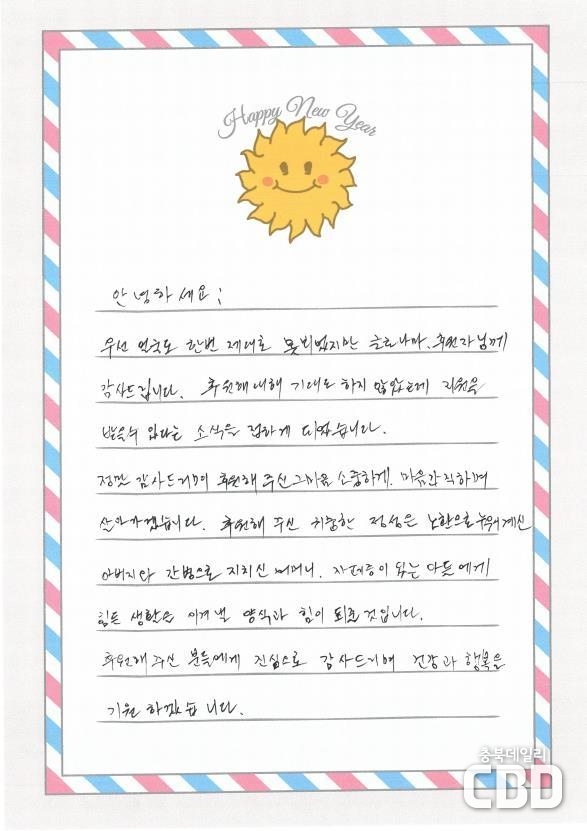 Happy New Year
안녕하세요;
우선 얼굴도 한번 제대로 못뵈었지만 글로나마, 후원자님께
감사드립니다. 후원에 대해 기대도 하지 않았는데 지원을
받을수 있다는 소식을 접하게 되었습니다.
정말 감사드리며 후원해 주신 그마음 소중하게, 마음간직하며
살아가겠습니다. 후원해 주신 귀중한 정성은 노환으로 누워계신
아버지와 간병으로 지치신 어머니, 자폐증이 있는 아들에게
힘든 생활을 이겨낼 양식과 힘이 되줄 것입니다.
후원해 주신 분들에게 진심으로 감사드리며 건강과 행복을
기원 하겠습니다.
충북데일리
CBD